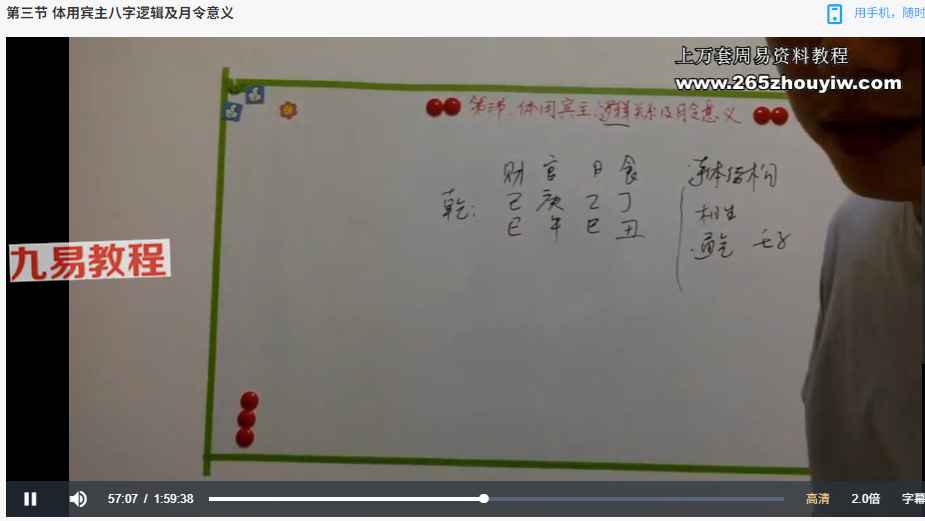 第三节 体用宾主八字逻辑及月令意义
用手机，随时
上万套周易资料教程
www.265zhouyiw.com
第三节.体用宾主逻辑关系及月令意义
财 官 日 食
乾: 己 庚 乙 丁
巳 午 巳 丑
相生
九易教程
57:07 / 1:59:38
高清 2.0倍 字幕